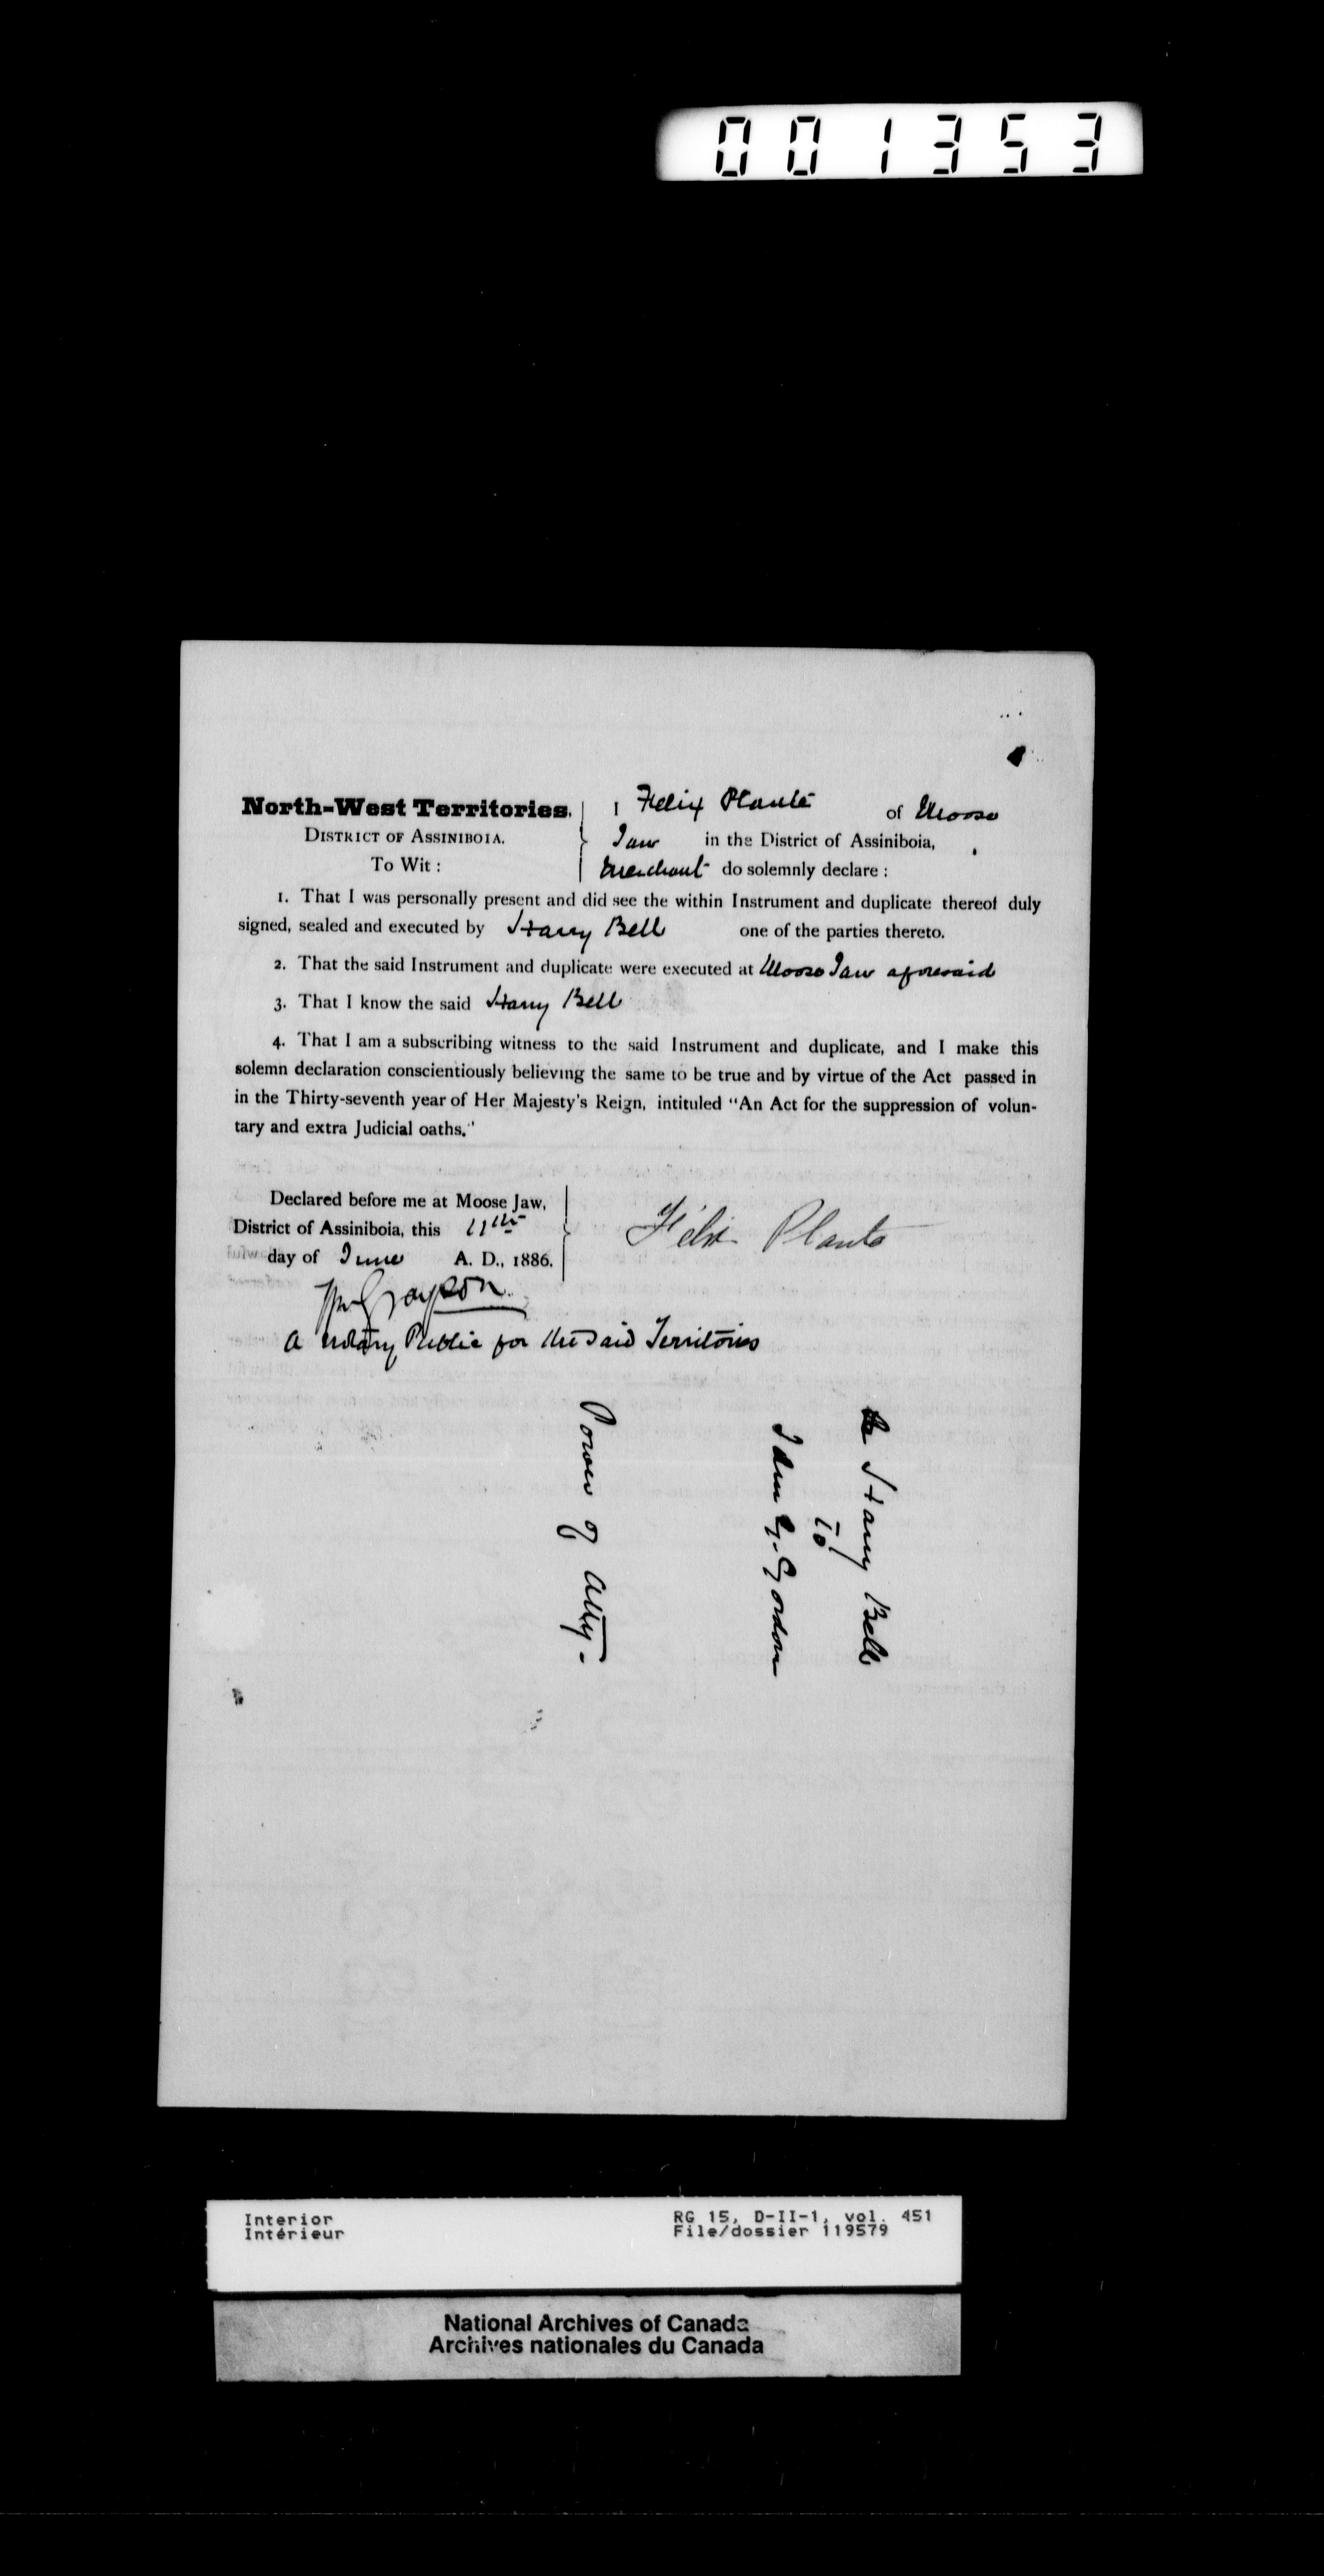 001353
North-West Territories.
DISTRICT OF ASSINIBOIA.
To Wit :
I Felix Planté of Moose
Jaw in the District of Assiniboia,
Merchant do solemnly declare :
1. That I was personally present and did see the within Instrument and duplicate thereof duly
signed, sealed and executed by Harry Bell one of the parties thereto.
2. That the said Instrument and duplicate were executed at Moose Jaw aforesaid
3. That I know the said Harry Bell
4. That I am a subscribing witness to the said Instrument and duplicate, and I make this
solemn declaration conscientiously believing the same to be true and by virtue of the Act passed in
in the Thirty-seventh year of Her Majesty's Reign, intituled "An Act for the suppression of volun-
tary and extra Judicial oaths."
Declared before me at Moose Jaw,
District of Assiniboia, this 11th
day of June A. D., 1886.
Félix Plante
Wm Grayson
A Notary Public for the said Territories
Harry Bell
to
Gordon
Power of Atty-
Interior
Intérieur
RG 15, D-II-1, vol. 451
File/dossier 119579
National Archives of Canada
Archives nationales du Canada